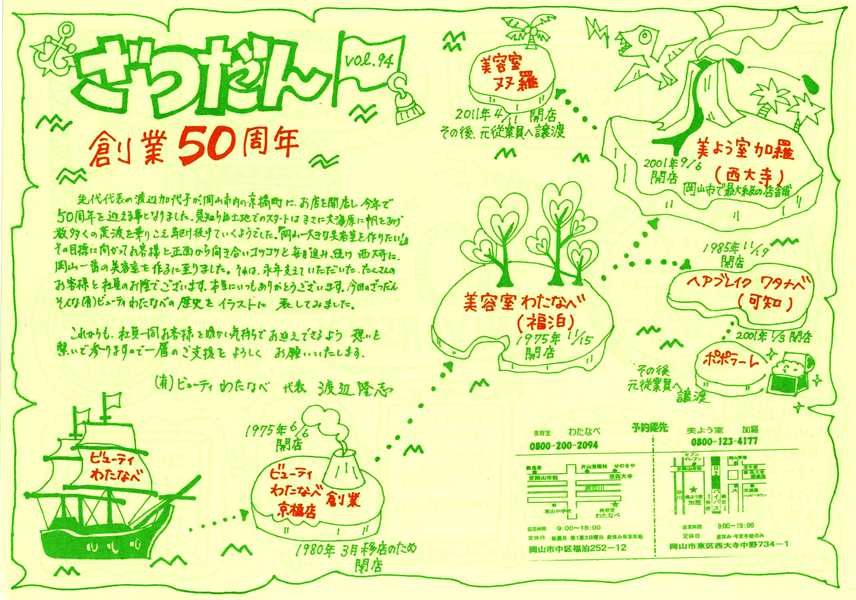 ざつだん
vol.94
創業50周年
先代代表の渡辺加代子が岡山市内の京橋町に、お店を開店し今年で
50周年を迎える事となりました。見知らぬ土地でのスタートはまさに大海原に帆をあげ
数多くの荒波を乗りこえ駆け抜けていくようでした。『岡山一大きな美容室を作りたい!』
その目標に向かってお客様と正面から向き合いコツコツと毎日進み続け 西大寺に、
岡山一番の美容室を作るに至りました。それは、永年支えていただいた、たくさんの
お客様と社員のお陰でございます。本当にいつもありがとうございます。今回のざつだん
そんな(有)ビューティわたなべの歴史をイラストに 表してみました。
これからも、社員一同お客様を暖かい気持ちでお迎えできるよう 想いを
繋いで参りますので一層のご支援をよろしく お願いいたします。
(有)ビューティ わたなべ 代表 渡辺隆志
ビューティ
わたなべ
1975年6/6
開店
ビューティ
わたなべ
京橋店
創業
1980年 3月移店のため
閉店
美容室わたなべ
(福泊)
1975年 11/15
開店
美容室
双羅
2011年4/11 開店
その後、元従業員へ譲渡
美よう室 加羅
(西大寺)
2001年9/6
開店
岡山市で最大級の店舗
1985年11/19
開店
ヘアブレイク ワタナベ
(可知)
2001年1/3 閉店
ポポラーレ
その後
元従業員へ
譲渡
予約優先
美容室 わたなべ
0800-200-2094
営業時間 9:00~18:00
定休日 毎週月 第1第3日曜日 盆休み・年末年始
岡山市中区福泊252-12
美よう室 加羅
0800-123-4177
営業時間 9:00~18:00
定休日 盆休み・年末年始のみ
岡山市東区西大寺中野734-1